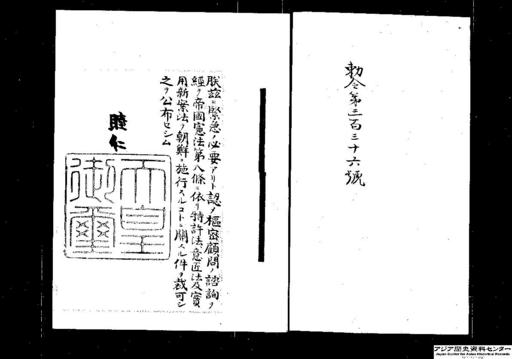 勅令第三百三十六號
朕茲ニ緊急ノ必要アリト認メ樞密顧問ノ諮詢ヲ
經テ帝國憲法第八條ニ依リ特許法、意匠法及實
用新案法ヲ朝鮮ニ施行スルコトニ關スル件ヲ裁可シ
之ヲ公布セシム
睦仁
天皇
御璽
アジア歴史資料センター
Japan Center for Asian Historical Records